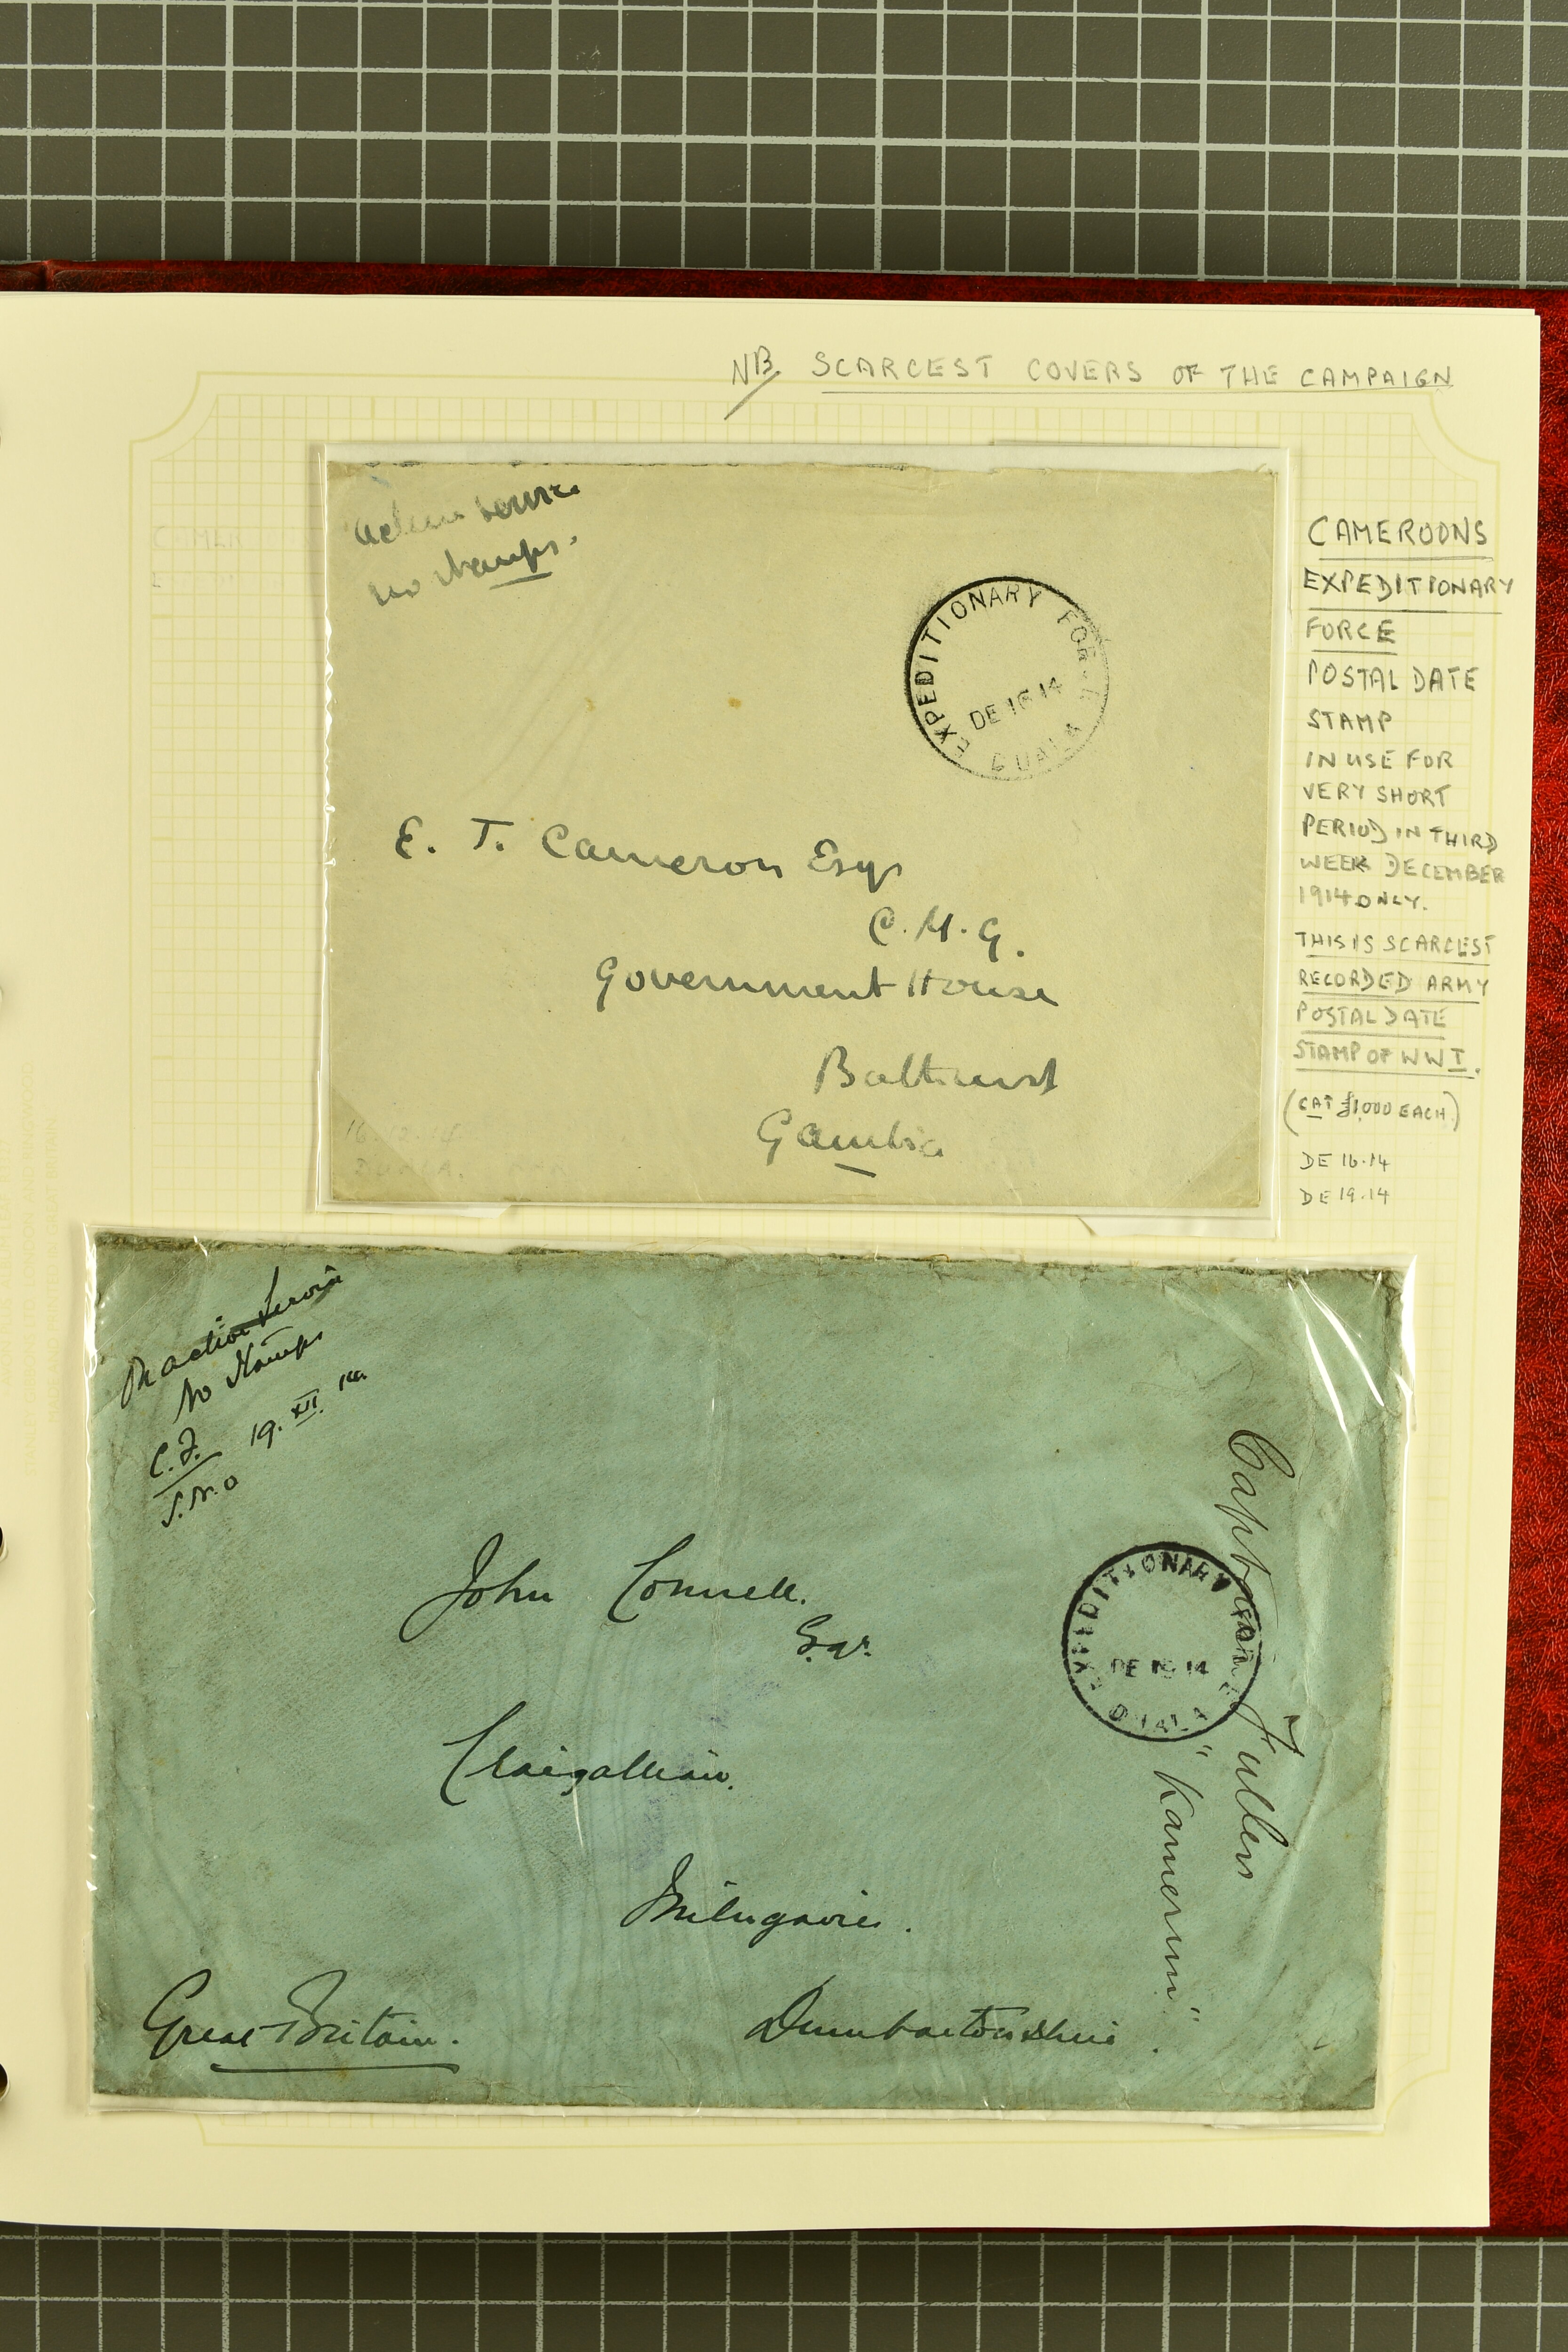 NB SCARCEST COVERS OF THE CAMPAIGN
Active Service
no stamps.
EXPEDITIONARY FORCE
DE 16 14
DUALA
E. T. Cameron Esqr
C.M.G.
Government House
Bathurst
Gambia
16.12.14
DUALA.
CAMEROONS
EXPEDITIONARY
FORCE
POSTAL DATE
STAMP
IN USE FOR
VERY SHORT
PERIOD IN THIRD
WEEK DECEMBER
1914 ONLY.
THIS IS SCARCEST
RECORDED ARMY
POSTAL DATE
STAMP OF WWI.
(CAT £1,000 EACH.)
DE 16.14
DE 19.14
On active Service
No Stamps
C.F. 19. XII. 14
S.N.O
John Connell.
Esqr.
Craigallian.
Milngavie.
Dumbartonshire.
Great Britain.
EXPEDITIONARY FORCE
DE 19 14
DUALA
Capt Fullers
"Kamerun"